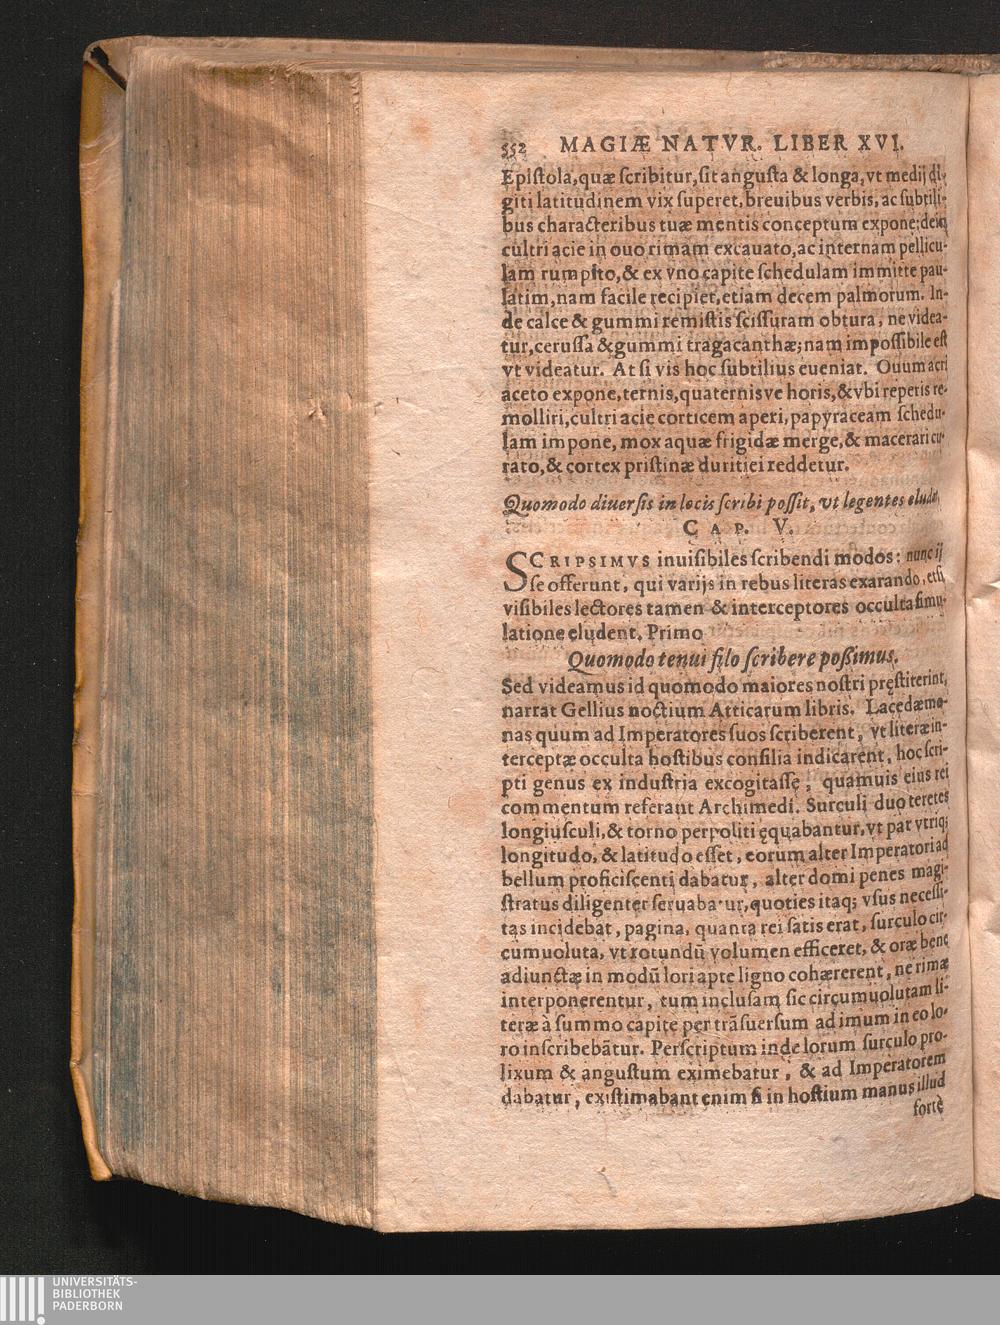 552 MAGIÆ NATVR. LIBER XVI.
Epiſtola, quæ ſcribitur, ſit anguſta & longa, vt medij di-
giti latitudinem vix ſuperet, breuibus verbis, ac ſubtili-
bus characteribus tuæ mentis conceptum expone; dein
cultri acie in ouo rimam excauato, ac internam pellicu-
lam rumpito, & ex vno capite ſchedulam immitte pau-
latim, nam facile recipiet, etiam decem palmorum. In-
de calce & gummi remiſtis ſciſſuram obtura, ne videa-
tur, ceruſſa & gummi tragacanthæ; nam impoſſibile eſt
vt videatur. At ſi vis hoc ſubtilius eueniat. Ouum acri
aceto expone, ternis, quaternisve horis, & vbi reperis re-
molliri, cultri acie corticem aperi, papyraceam ſchedu-
lam impone, mox aquæ frigidæ merge, & macerari cu-
rato, & cortex priſtinæ duritiei reddetur.
Quomodo diuerſis in locis ſcribi poſſit, vt legentes eludat,
CAP. V.
SCRIPSIMVS inuiſibiles ſcribendi modos: nunc ij
ſe offerunt, qui varijs in rebus literas exarando, etſi
viſibiles lectores tamen & interceptores occulta ſimu-
latione eludent. Primo
Quomodo tenui filo ſcribere poſſimus.
Sed videamus id quomodo maiores noſtri pręſtiterint,
narrat Gellius noctium Atticarum libris. Lacedæmo-
nas quum ad Imperatores ſuos ſcriberent, vt literæ in-
terceptæ occulta hoſtibus conſilia indicarent, hoc ſcri-
pti genus ex induſtria excogitaſſe, quamuis eius rei
commentum referant Archimedi. Surculi duo teretes
longiuſculi, & torno perpoliti ęquabantur, vt par vtriq;
longitudo, & latitudo eſſet, eorum alter Imperatori ad
bellum proficiſcenti dabatur, alter domi penes magi-
ſtratus diligenter ſeruabatur, quoties itaq; vſus neceſſi-
tas incidebat, pagina, quanta rei ſatis erat, ſurculo cir-
cumuoluta, vt rotundū volumen efficeret, & oræ bene
adiunctæ in modū lori apte ligno cohærerent, ne rimæ
interponerentur, tum incluſam ſic circumuolutam li-
teræ à ſummo capite per trāſuerſum ad imum in eo lo-
ro inſcribebātur. Perſcriptum inde lorum ſurculo pro-
lixum & anguſtum eximebatur, & ad Imperatorem
dabatur, exiſtimabant enim ſi in hoſtium manus illud
fortè
UNIVERSITÄTS-
BIBLIOTHEK
PADERBORN